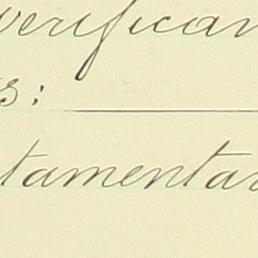 verifican
s:
tamentar